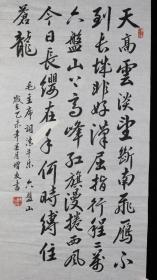 天高雲淡望斷南飛雁不
到長城非好漢屈指行程二萬
六盤山上高峰紅旗漫捲西風
今日長纓在手何時縛住
蒼龍
毛主席詞清平樂六盤山